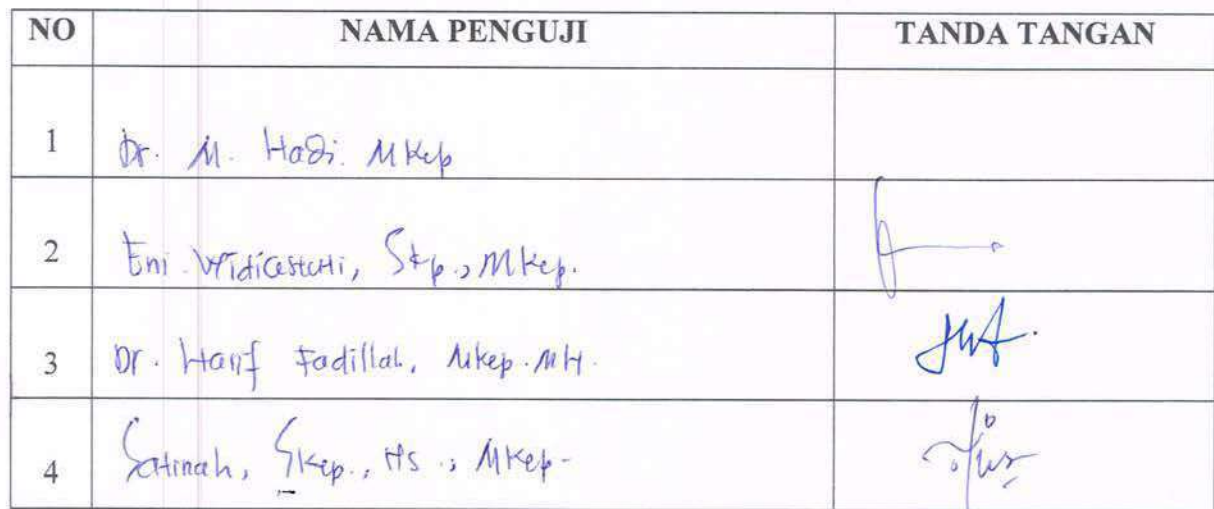 NO NAMA PENGUJI TANDA TANGAN
1 Dr. M. Hadi. MKep
2 Eni Widiastuti, Skp., MKep.
3 Dr. Hanif Fadillah, MKep. MH.
4 Satinah, SKep., Ns., MKep-